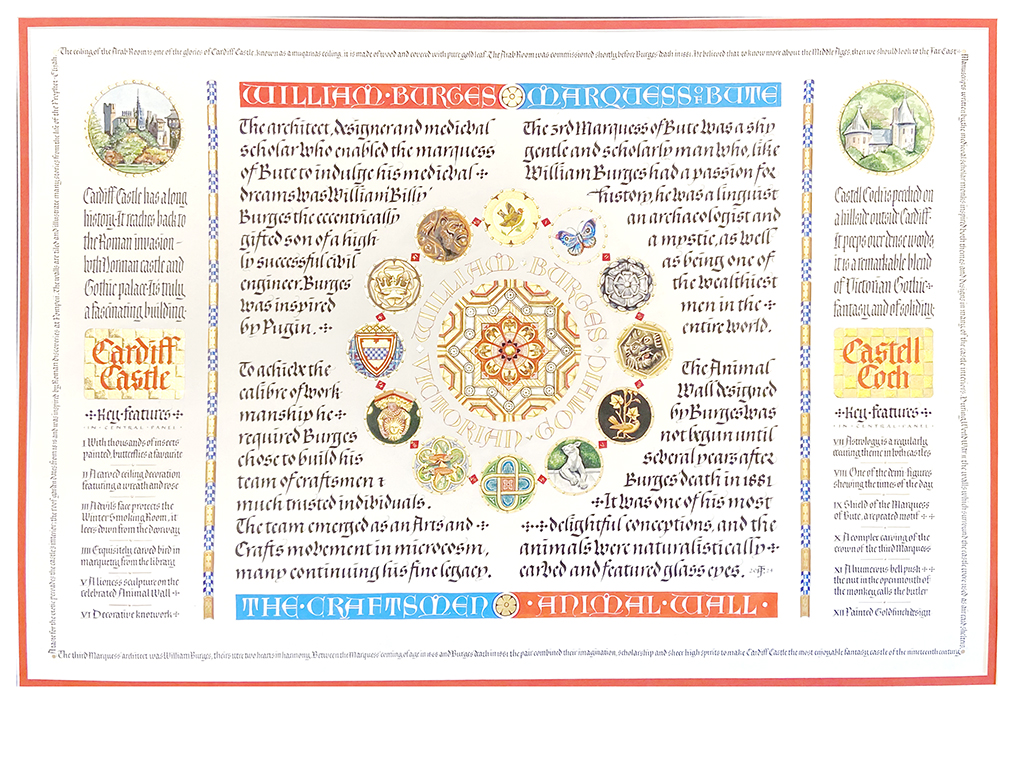 The ceiling of the Arab Room is one of the glories of Cardiff Castle, known as a muqarnas ceiling, it is made of wood and covered with pure gold leaf. The Arab Room was commissioned shortly before Burges' death in 1881. He believed that to know more about the Middle Ages, then we should look to the Far East
Cardiff Castle has a long
history. It reaches back to
the Roman invasion –
both Norman castle and
Gothic palace. Its truly
a fascinating building.
Cardiff
Castle
Key features
IN CENTRAL PANEL
I With thousands of insects
painted, butterflies a favourite
II A carved ceiling decoration
featuring a wreath and rose
III A devil's face protects the
Winter Smoking Room, it
leers down from the doorway
IIII Exquisitely carved bird in
marquetry from the library
V A lioness sculpture on the
celebrated Animal Wall
VI Decorative knotwork
WILLIAM BURGES
The architect, designer and medieval
scholar who enabled the marquess
of Bute to indulge his medieval
dreams was William 'Billy'
Burges the eccentrically
gifted son of a high-
ly successful civil
engineer. Burges
was inspired
by Pugin.
To achieve the
calibre of work-
manship he
required Burges
chose to build his
team of craftsmen &
much trusted individuals.
The team emerged as an Arts and
Crafts movement in microcosm,
many continuing his fine legacy.
THE CRAFTSMEN
MARQUESS OF BUTE
The 3rd Marquess of Bute was a shy
gentle and scholarly man who, like
William Burges had a passion for
history, he was a linguist
an archaeologist and
a mystic, as well
as being one of
the wealthiest
men in the
entire world.
The Animal
Wall designed
by Burges was
not begun until
several years after
Burges death in 1881
It was one of his most
delightful conceptions, and the
animals were naturalistically
carved and featured glass eyes.
ANIMAL WALL
WILLIAM BURGES
VICTORIAN GOTHIC
Castell Coch is perched on
a hillside outside Cardiff
It peeps over dense woods
it is a remarkable blend
of Victorian Gothic
fantasy and of solidity.
Castell
Coch
Key features
IN CENTRAL PANEL
VII Astrology is a regularly
recurring theme in both castles
VIII One of the demi-figures
showing the times of the day
IX Shield of the Marquess
of Bute, a repeated motif
X A complex carving of the
crown of the third Marquess
XI A humorous bell push
the nut in the open mouth of
the monkey calls the butler
XII Painted Goldfinch design
The third Marquess' architect was William Burges, theirs were two hearts in harmony. Between the Marquess' coming of age in 1868 and Burges death in 1881 the pair combined their imagination, scholarship and sheer high spirits to make Cardiff Castle the most enjoyable fantasy castle of the nineteenth century